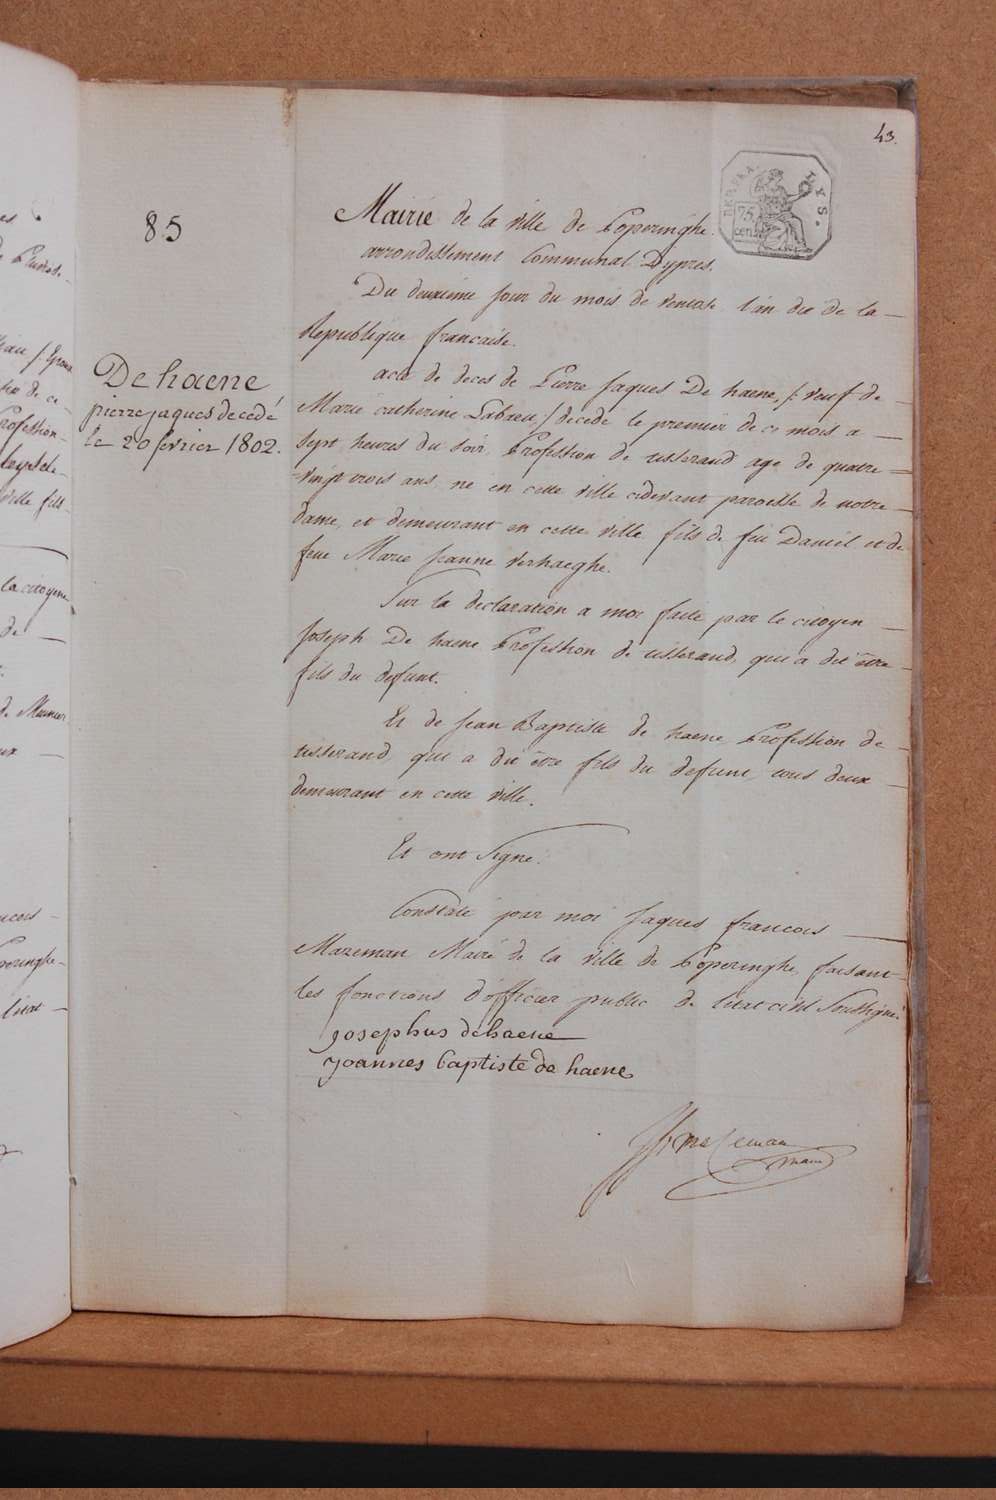 43.
REP. FRA.
LYS.
75
cent.
85
Mairie de la ville de Poperinghe.
arrondissement Communal Dypres.
Du deuxieme jour du mois de ventose l'an dix de la
Republique francaise.
acte de deces de Pierre Jaques De haene, /: veuf de
Marie catherine Labreu :/ decedé le premier de ce mois a
sept heures du soir, Profession de tisserand age de quatre
vingt trois ans, né en cette ville cidevant paroisse de notre
dame, et demeurant en cette ville fils de feu Daniel et de
feue Marie Jeanne verhaeghe.
Dehaene
pierre jaques decedé
le 20 fevrier 1802.
Sur la declaration a moi faite par le citoyen
Joseph De haene Profession de tisserand, qui a dit être
fils du defunt.
Et de Jean Baptiste de haene Profession de
tisserand, qui a dit être fils du defunt, tous deux
demeurant en cette ville.
Et ont Signé.
Constaté par moi Jaques francois
Mazeman Maire de la ville de Poperinghe, faisant
les fonctions d'officier public de l'etat civil Soussigné.
Josephus dehaene
Joannes baptiste de haene
maire